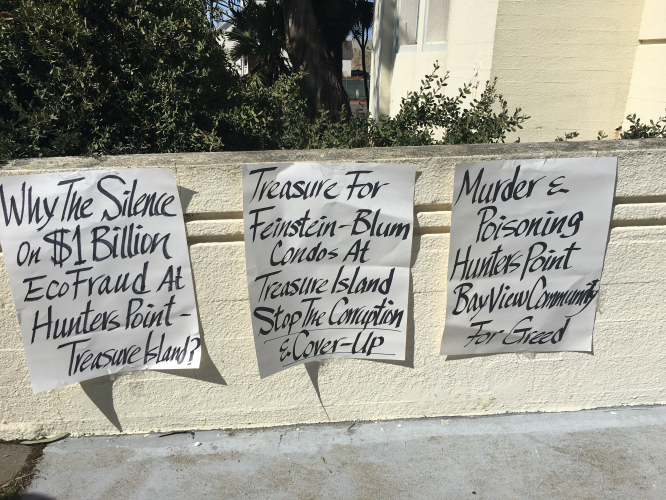 Why The Silence
On $1 Billion
EcoFraud At
Hunters Point -
Treasure Island?
Treasure For
Feinstein-Blum
Condos At
Treasure Island
Stop The Corruption
& Cover-Up
Murder &
Poisoning
Hunters Point
BayView Community
For Greed